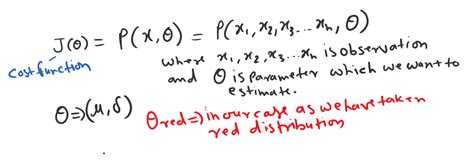 J(θ) = P(x,θ) = P(x₁,x₂,x₃...xₙ,θ)
cost function
where x₁,x₂,x₃...xₙ is observation
and θ is parameter which we want to
estimate.
θ⇒(μ,δ)
θred⇒)in our case as we have taken
red distribution